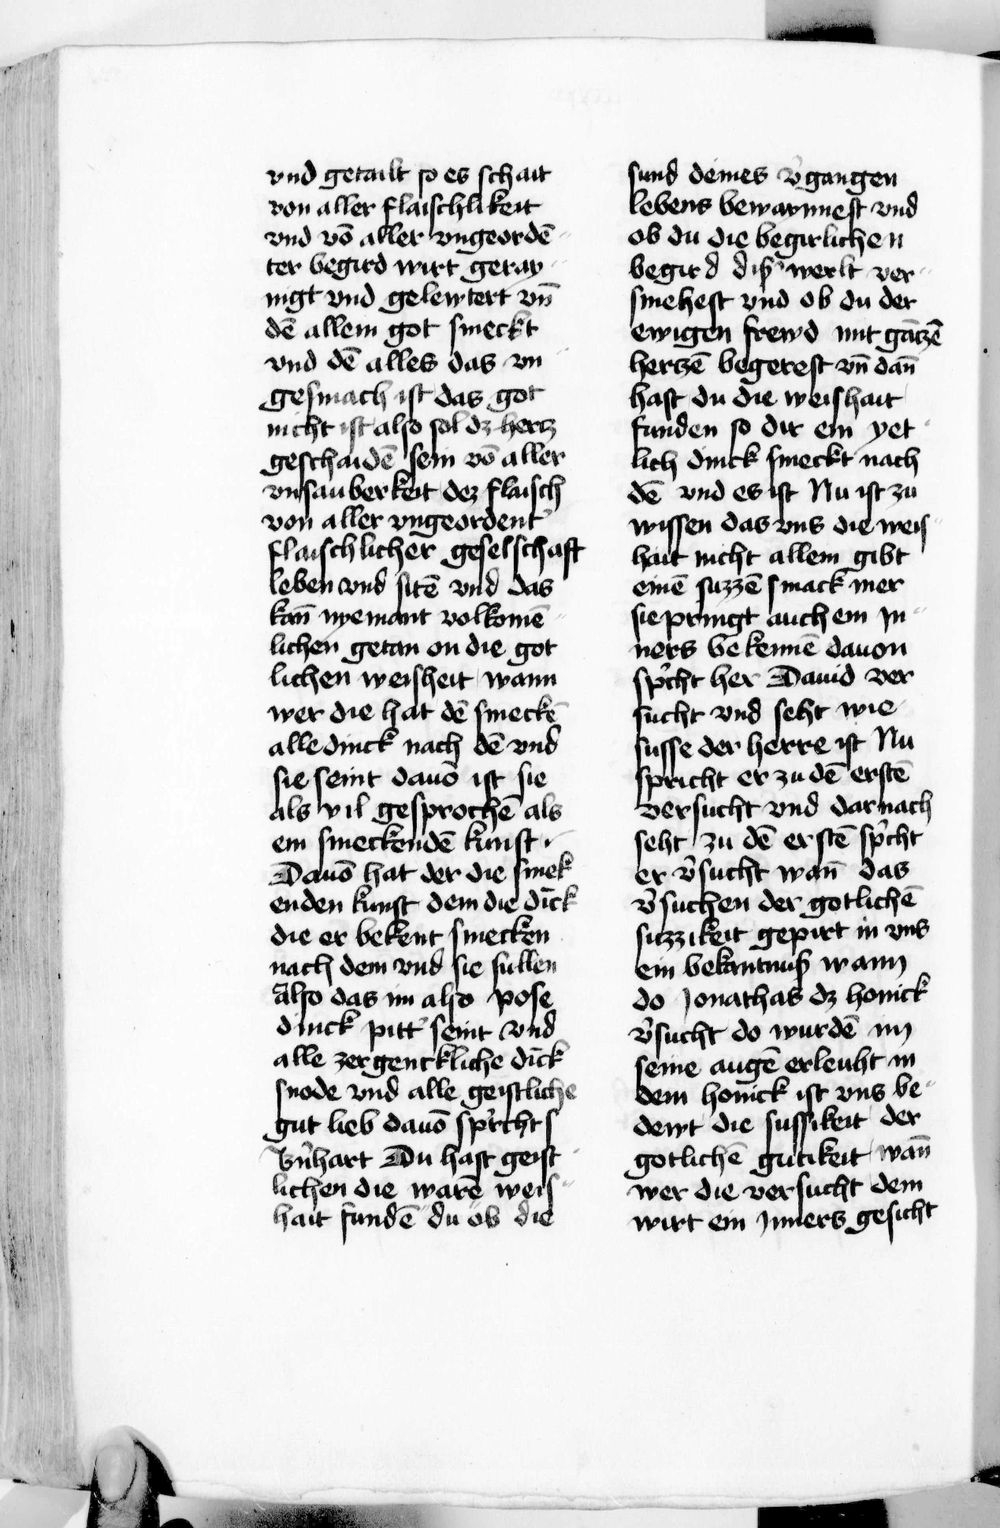 vnd getailt so es schait
von aller flaischlikeit
vnd vō aller vngeordē
ter begird wirt geray
nigt vnd gelewtert vn̄
dē allein got smeckt
vnd dē alles das vn
gesmach ist das got
nicht ist also sol dz hertz
geschaidē sein vō aller
vnsauberkeit dez flaisch
von aller vngeordent
flaischlicher geselschaft
leben vnd sitē vnd das
kan̄ nyemant volkomē
lichen getan on die got
lichen weisheit wann
wer die hat dē smeckē
alle dinck nach dē vnd
sie seint dauō ist sie
als vil gesprochē als
ein smeckendē kunst
Dauō hat der die smek
enden kunst dem die dīck
die er bekent smecken
nach dem vnd sie sullen
also das im also pose
dinck pitt' seint vnd
alle zergenckliche dīck
snode vnd alle geistliche
gut lieb dauō sp'icht s
b'nhart Du hast geist
lichen die warē weis
hait fundē du ob die
sund deines v'gangen
lebens bewaynnest vnd
ob du die begirlichen
begird diß werlt ver
smehest vnd ob du der
ewigen frewd mit gātzē
hertzē begerest vn̄ dan̄
hast du die weishait
funden so dir ein yet
lich dinck smeckt nach
dē vnd es ist Nu ist zu
wissen das vns die weis
hait nicht allein gibt
einē suzzē smack mer
sie pringt auch ein jn
ners bekennē dauon
sp'icht her Dauid ver
sucht vnd seht wie
susse der herre ist Nu
spricht er zu dē erstē
versucht vnd darnach
seht zu dē erstē sp'icht
er v'sucht wan̄ das
v'suchen der gotlichē
suzzikeit gepirt in vns
ein bekantnuß wann
do Jonathas dz honick
v'sucht do wurdē im
seine augē erleuht in
dem honick ist vns be
dewt die sussikeit der
gotlichē gutikeit wan̄
wer die versucht dem
wirt ein jnners gesicht